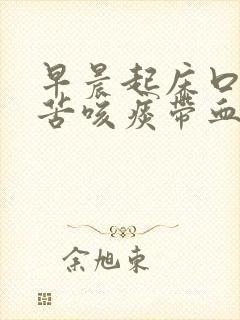 早晨起床口
苦咳痰带血
余旭东